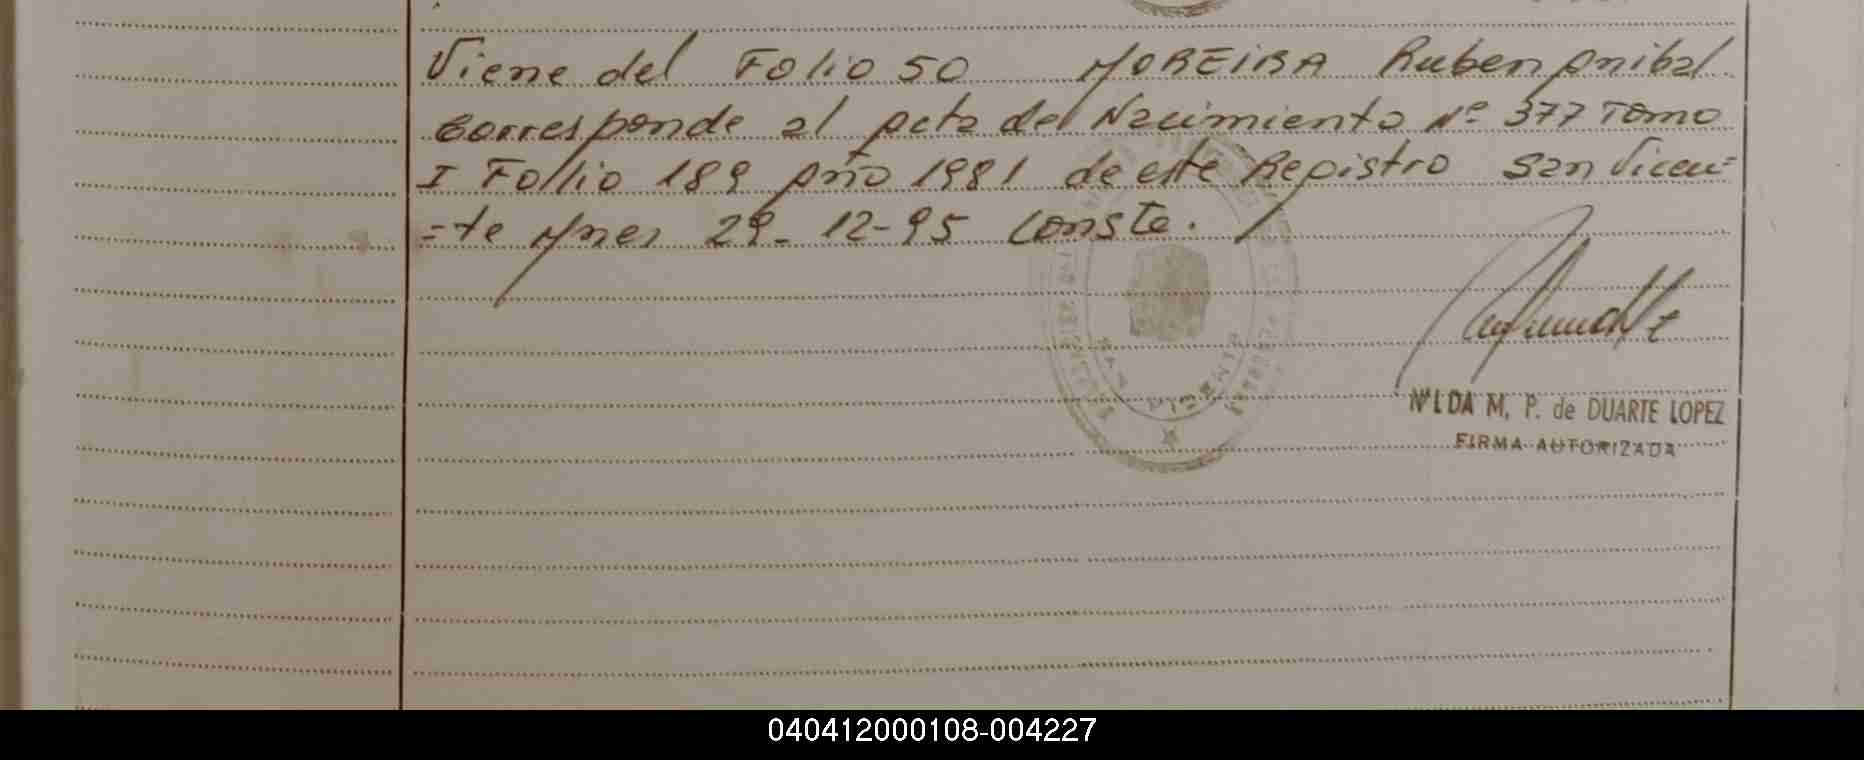 Viene del Folio 50 MOREIRA Ruben Anibal
Corresponde al Acta de Nacimiento Nº 377 Tomo
I Folio 189 Año 1981 de este Registro San Vicen=
=te Mnes 29-12-95 Conste.
NILDA M. P. de DUARTE LOPEZ
FIRMA AUTORIZADA
040412000108-004227